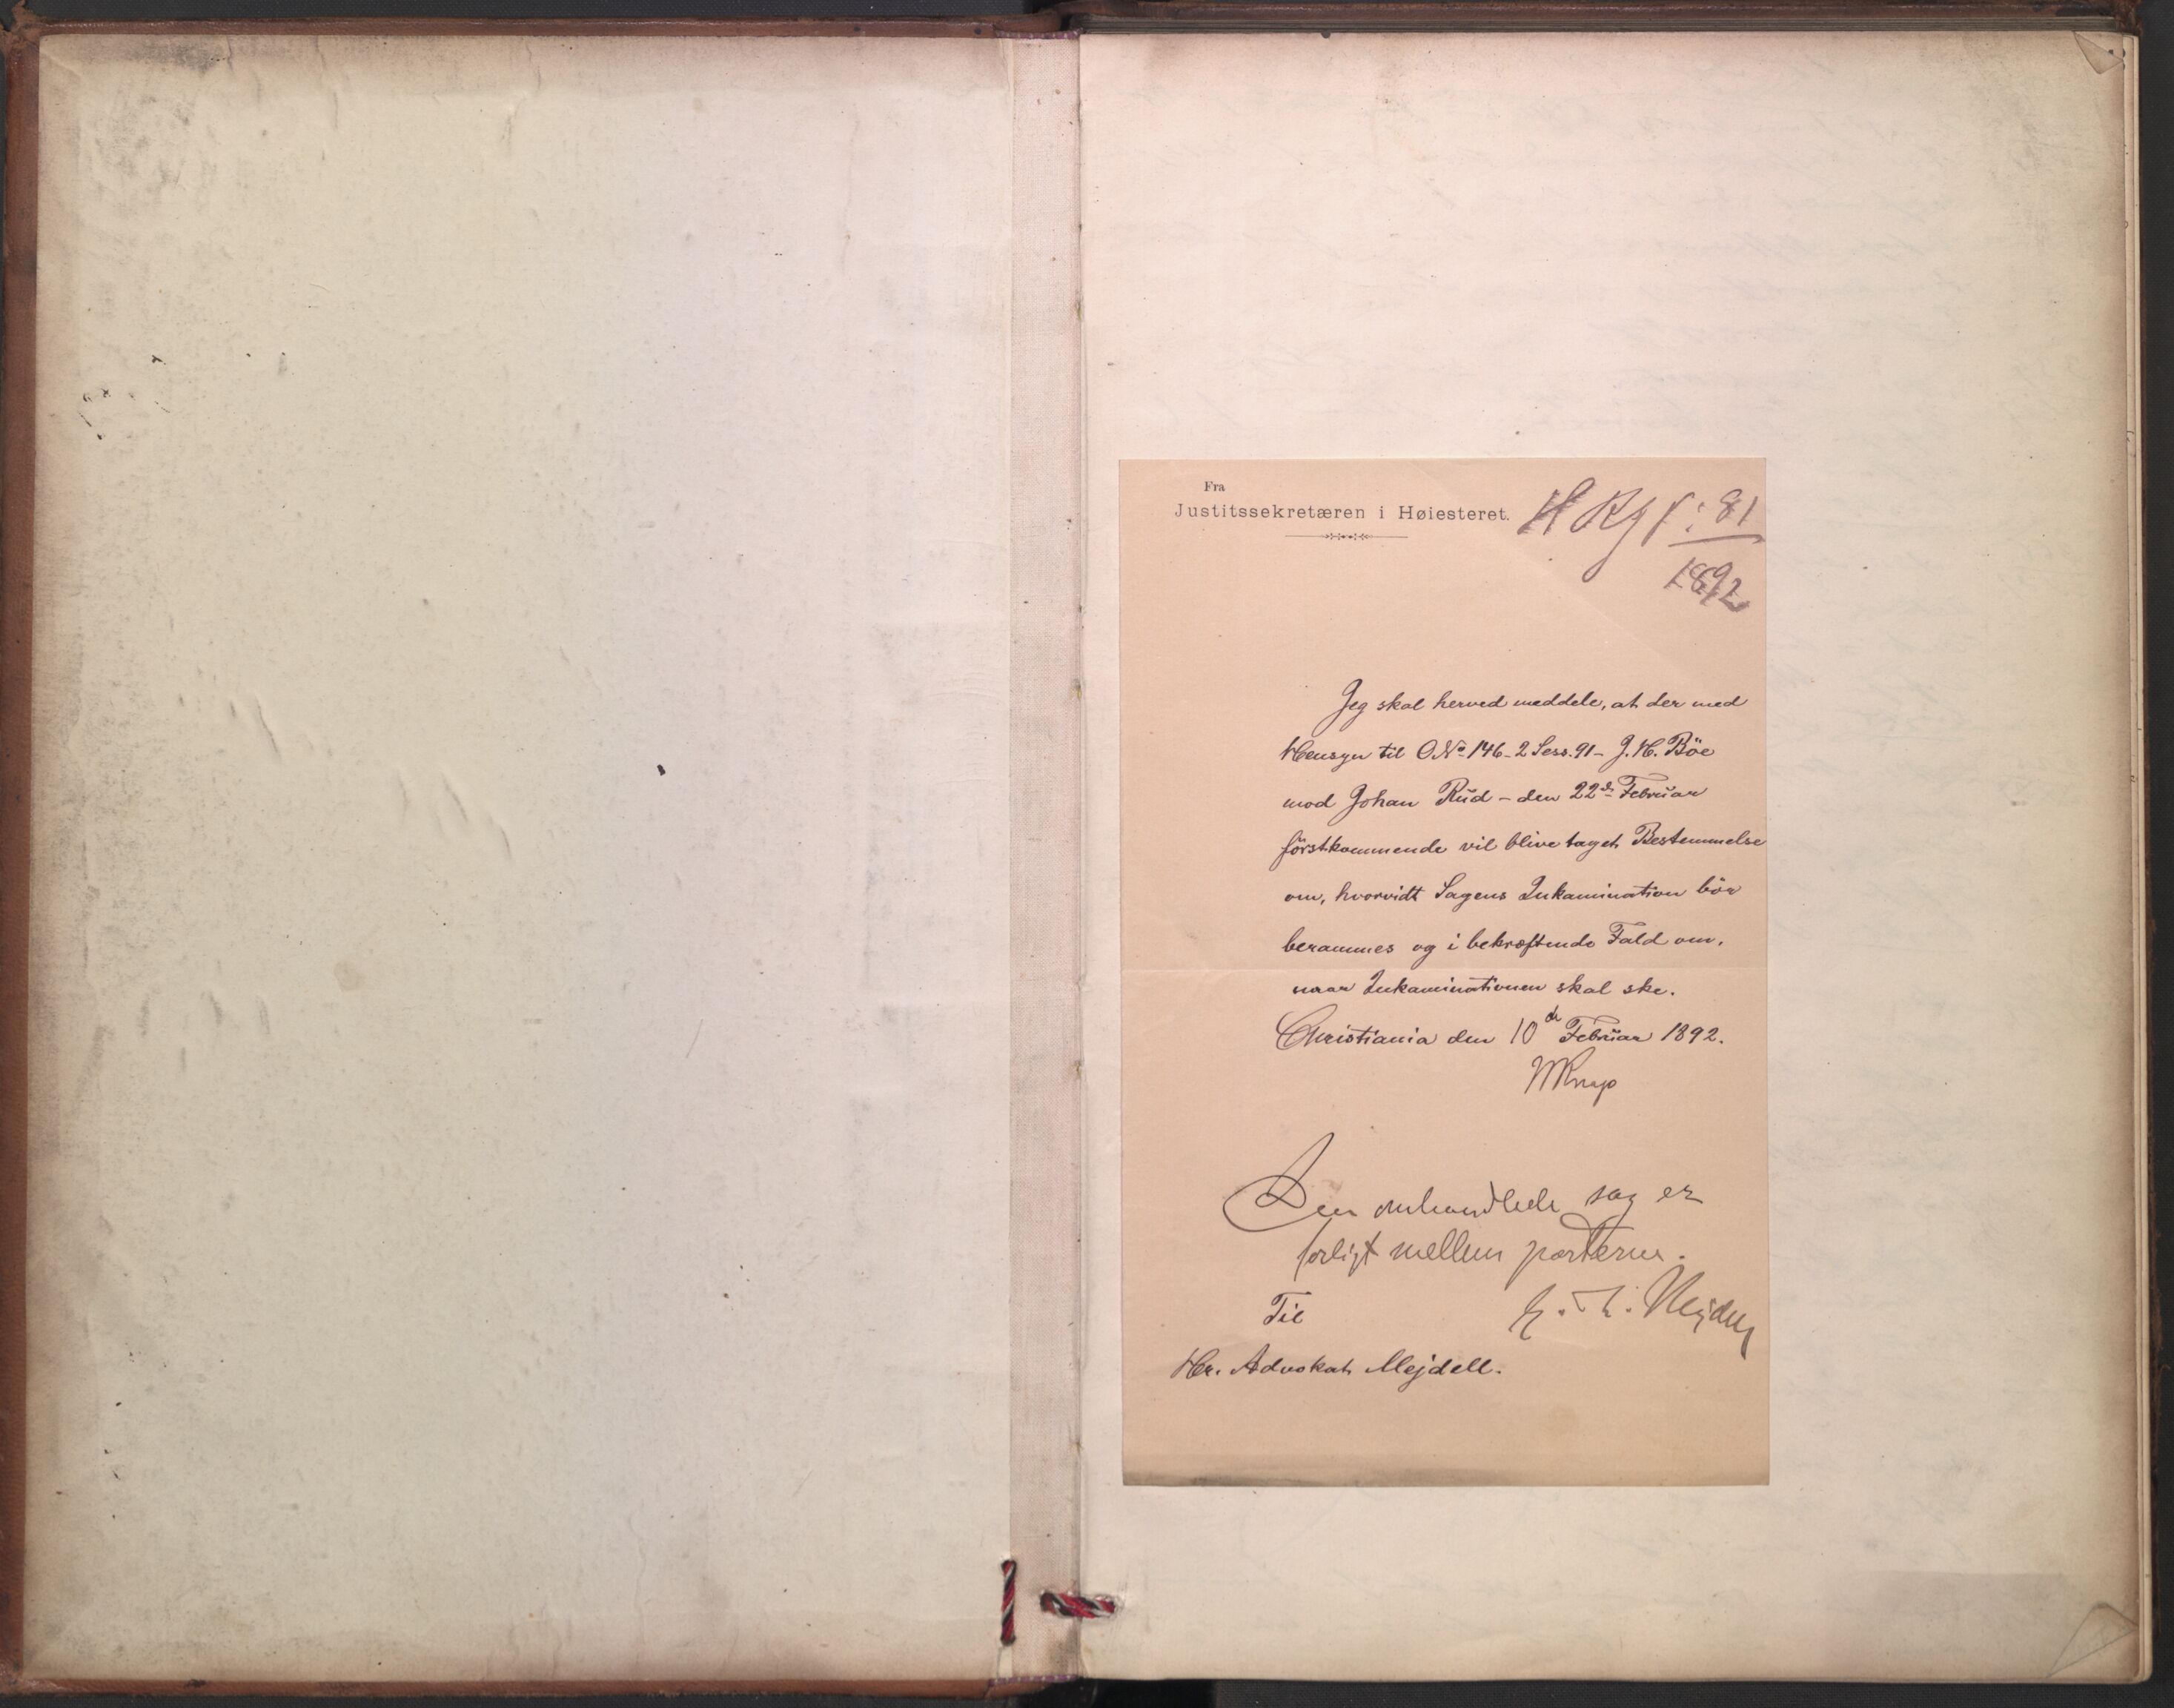 Fra
Justitssekretæren i Høiesteret.
81
1892
Jeg skal herved meddele, at der med
Hensyn til O.No 146 - 2 Sess. 91 - J. H. Böe
mod Johan Rud - den 22de Februar
förstkommende vil blive taget Bestemmelse
om, hvorvidt Sagens Inkamination bör
berammes og i bekræftende Fald om,
naar Inkaminationen skal ske.
Christiania den 10de Februar 1892.
Den omhandlede sag er
forligt mellem parterne.
Til
Hr. Advokat Mejdell.